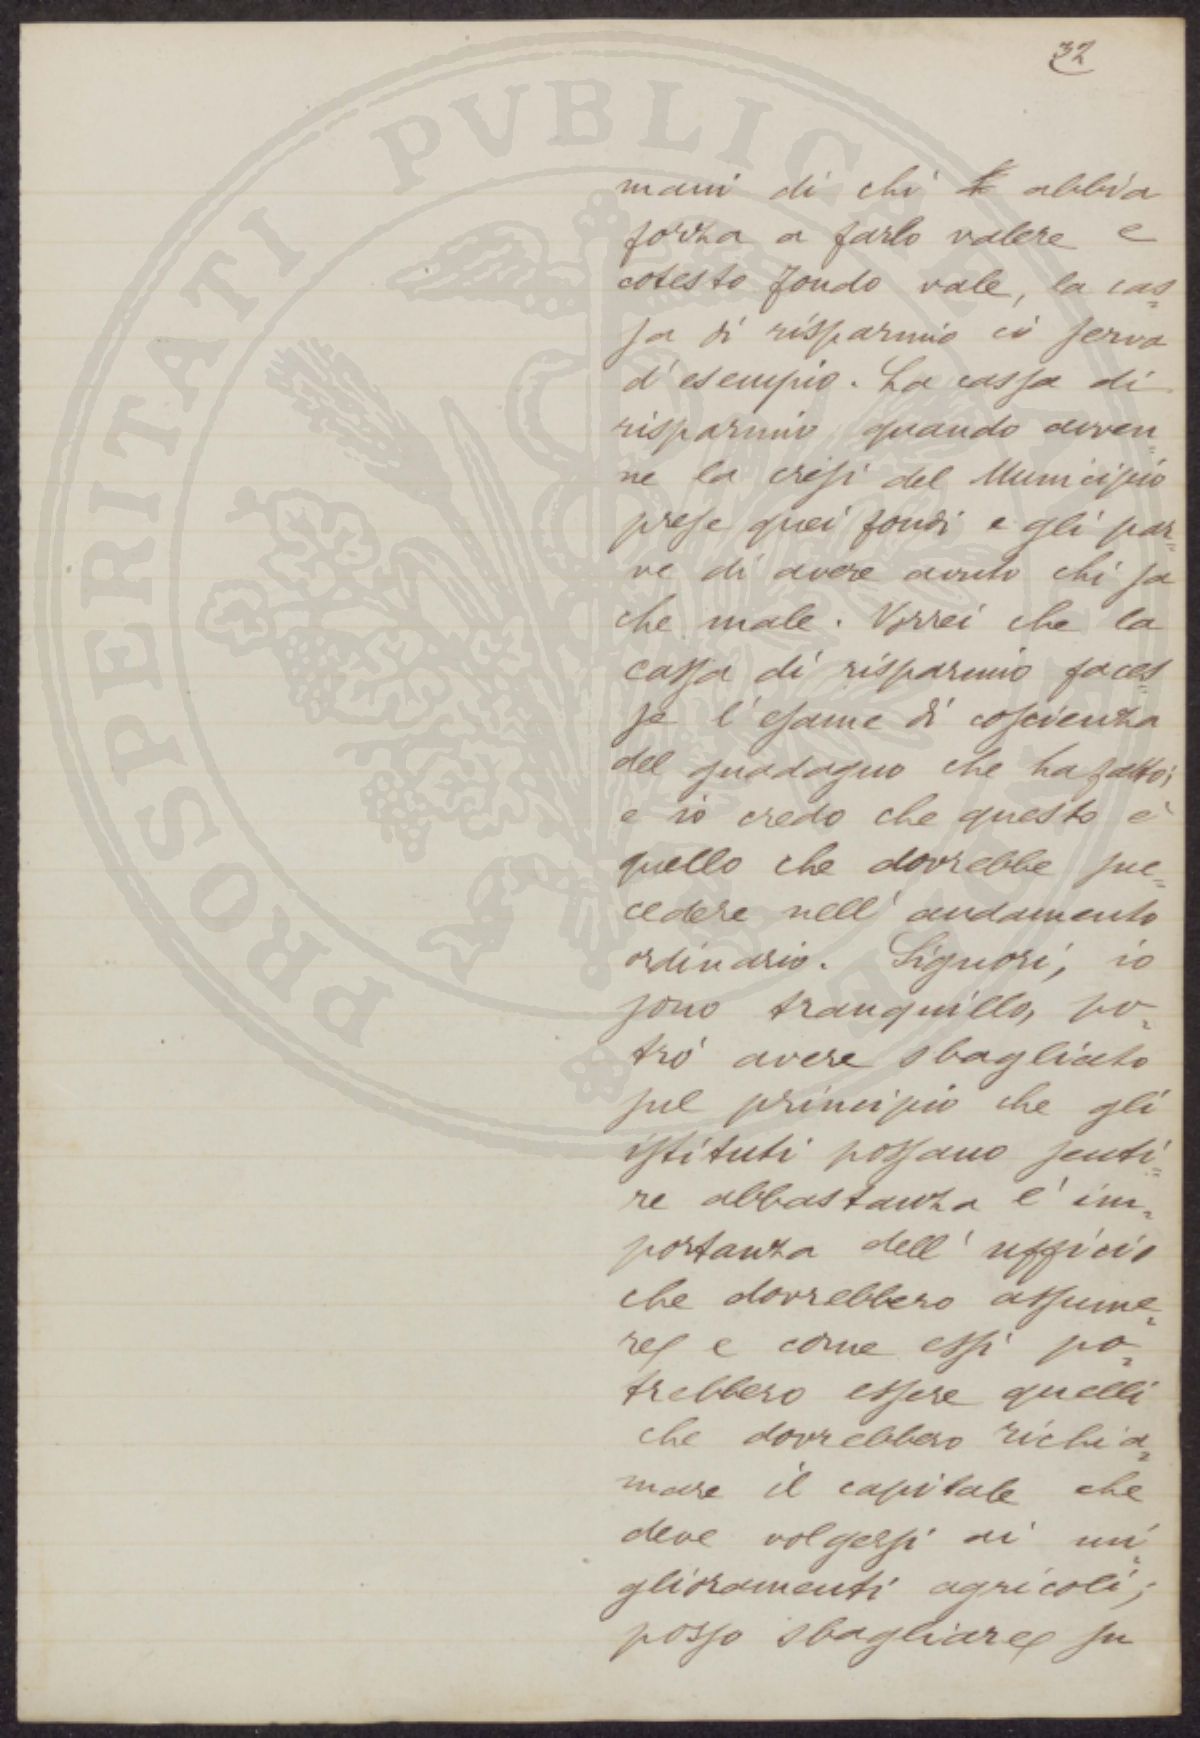 32
mani di chi abbia
forza a farlo valere e
cotesto fondo vale, la cas=
sa di risparmio ci serva
d'esempio. La cassa di
risparmio, quando avven=
ne la crisi del Municipio
prese quei fondi e gli par=
ve di avere avuto chi sa
che male. Vorrei che la
cassa di risparmio faces=
se l'esame di coscienza
del guadagno che ha fatto;
e io credo che questo è
quello che dovrebbe suc=
cedere nell'andamento
ordinario. Signori, io
sono tranquillo, po=
trò avere sbagliato
sul principio che gli
istituti possano senti=
re abbastanza l'im=
portanza dell'ufficio
che dovrebbero assume=
re, e come essi po=
trebbero essere quelli
che dovrebbero richia=
mare il capitale che
deve volgersi ai mi=
glioramenti agricoli;
posso sbagliare, su
PROSPERITATI PVBLICAE